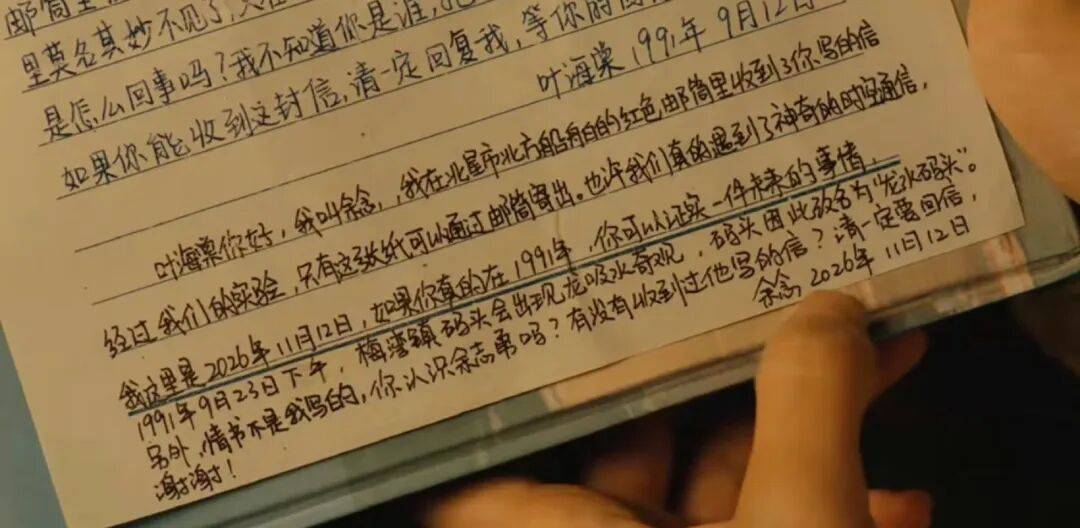 邮筒里
里莫名其妙不见了,又在
是怎么回事吗?我不知道你是谁,
如果你能收到这封信,请一定回复我,等你的回
叶海棠 1991年 9月12日
叶海棠你好,我叫余念,我在北屋市北方船舶的红色邮筒里收到了你写的信
经过我们的实验,只有这张纸可以通过邮筒寄出。也许我们真的遇到了神奇的时空通信,
我这里是2026年11月12日,如果你真的在1991年,你可以证实一件未来的事情,
1991年9月23日下午,梅湾镇码头会出现龙吸水奇观,码头因此改名为"龙水码头"。
另外,情书不是我写的,你认识余志勇吗?有没有收到过他写的信?请一定要回信,
谢谢!
余念 2026年 11月12日